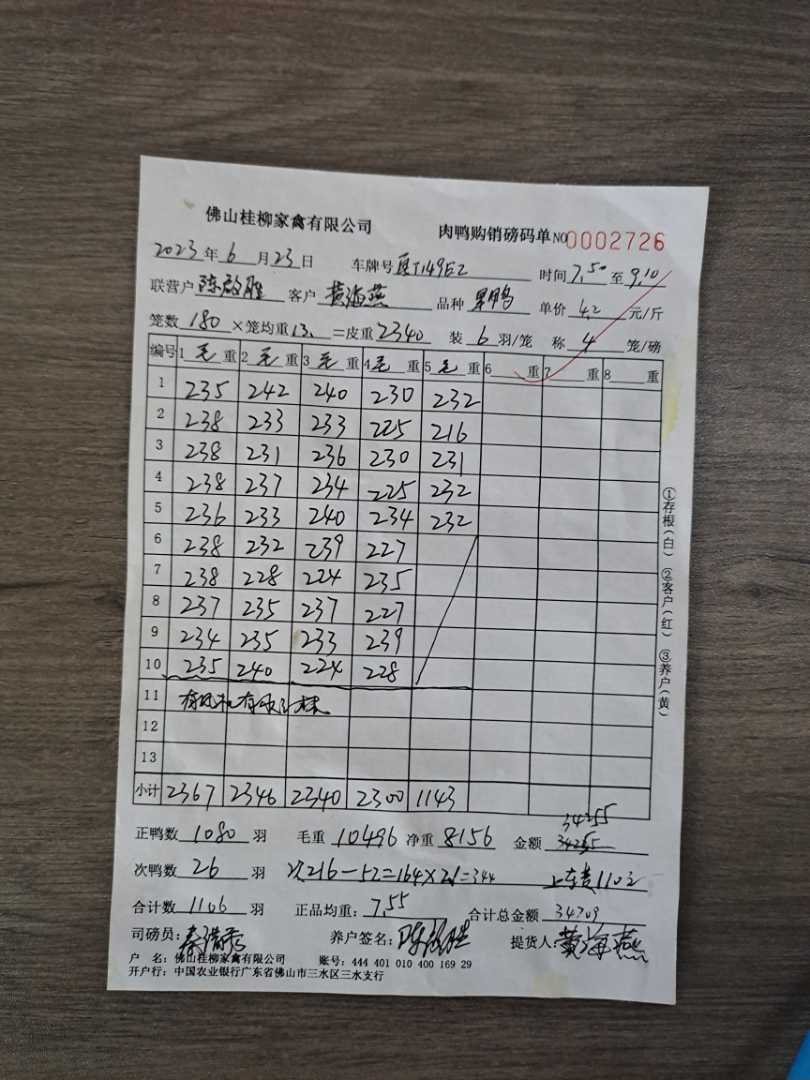 佛山桂柳家禽有限公司 肉鸭购销磅码单 NO 0002726
2023年6月23日 车牌号 T149E2 时间 7.50 至 9.10
联营户 陈 胜 客户 黄海燕 品种 鸭 单价 4.2 元/斤
笼数 180 ×笼均重 13. =皮重 2340 装 6 羽/笼 称 4 笼/磅
编号 1 毛 重 2 毛 重 3 毛 重 4 毛 重 5 毛 重 6 重 7 重 8 重
1 235 242 240 230 232
2 238 233 233 225 216
3 238 231 236 230 231
4 238 237 234 225 232
5 236 233 240 234 232
6 238 232 239 227
7 238 228 224 235
8 237 235 237 227
9 234 235 233 239
10 235 240 224 228
11
12
13
小计 2367 2346 2340 2300 1143
34255
正鸭数 1080 羽 毛重 10496 净重 8156 金额
次鸭数 26 羽 次216-52=164×2.1=344 上车费1102
合计数 1106 羽 正品均重: 7.55 合计总金额 34709
司磅员: 秦 秀 养户签名: 陈 胜 提货人: 黄海燕
户 名: 佛山桂柳家禽有限公司 账号: 444 401 010 400 169 29
开户行: 中国农业银行广东省佛山市三水区三水支行
①存根(白) ②客户(红) ③养户(黄)